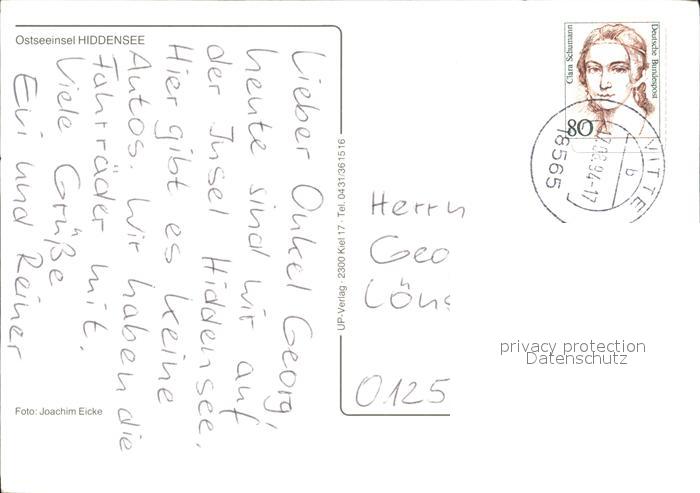 Ostseeinsel HIDDENSEE
Lieber Onkel Georg,
heute sind wir auf
der Insel Hiddensee.
Hier gibt es keine
Autos. Wir haben die
Fahrräder mit.
Viele Grüße
Evi und Reiner
Foto: Joachim Eicke
UP-Verlag · 2300 Kiel 17 · Tel. 0431/361516
Clara Schumann
Deutsche Bundespost
80
VITTE
b
94-17
18565
Herrn
Geo
Löns
0125
privacy protection
Datenschutz